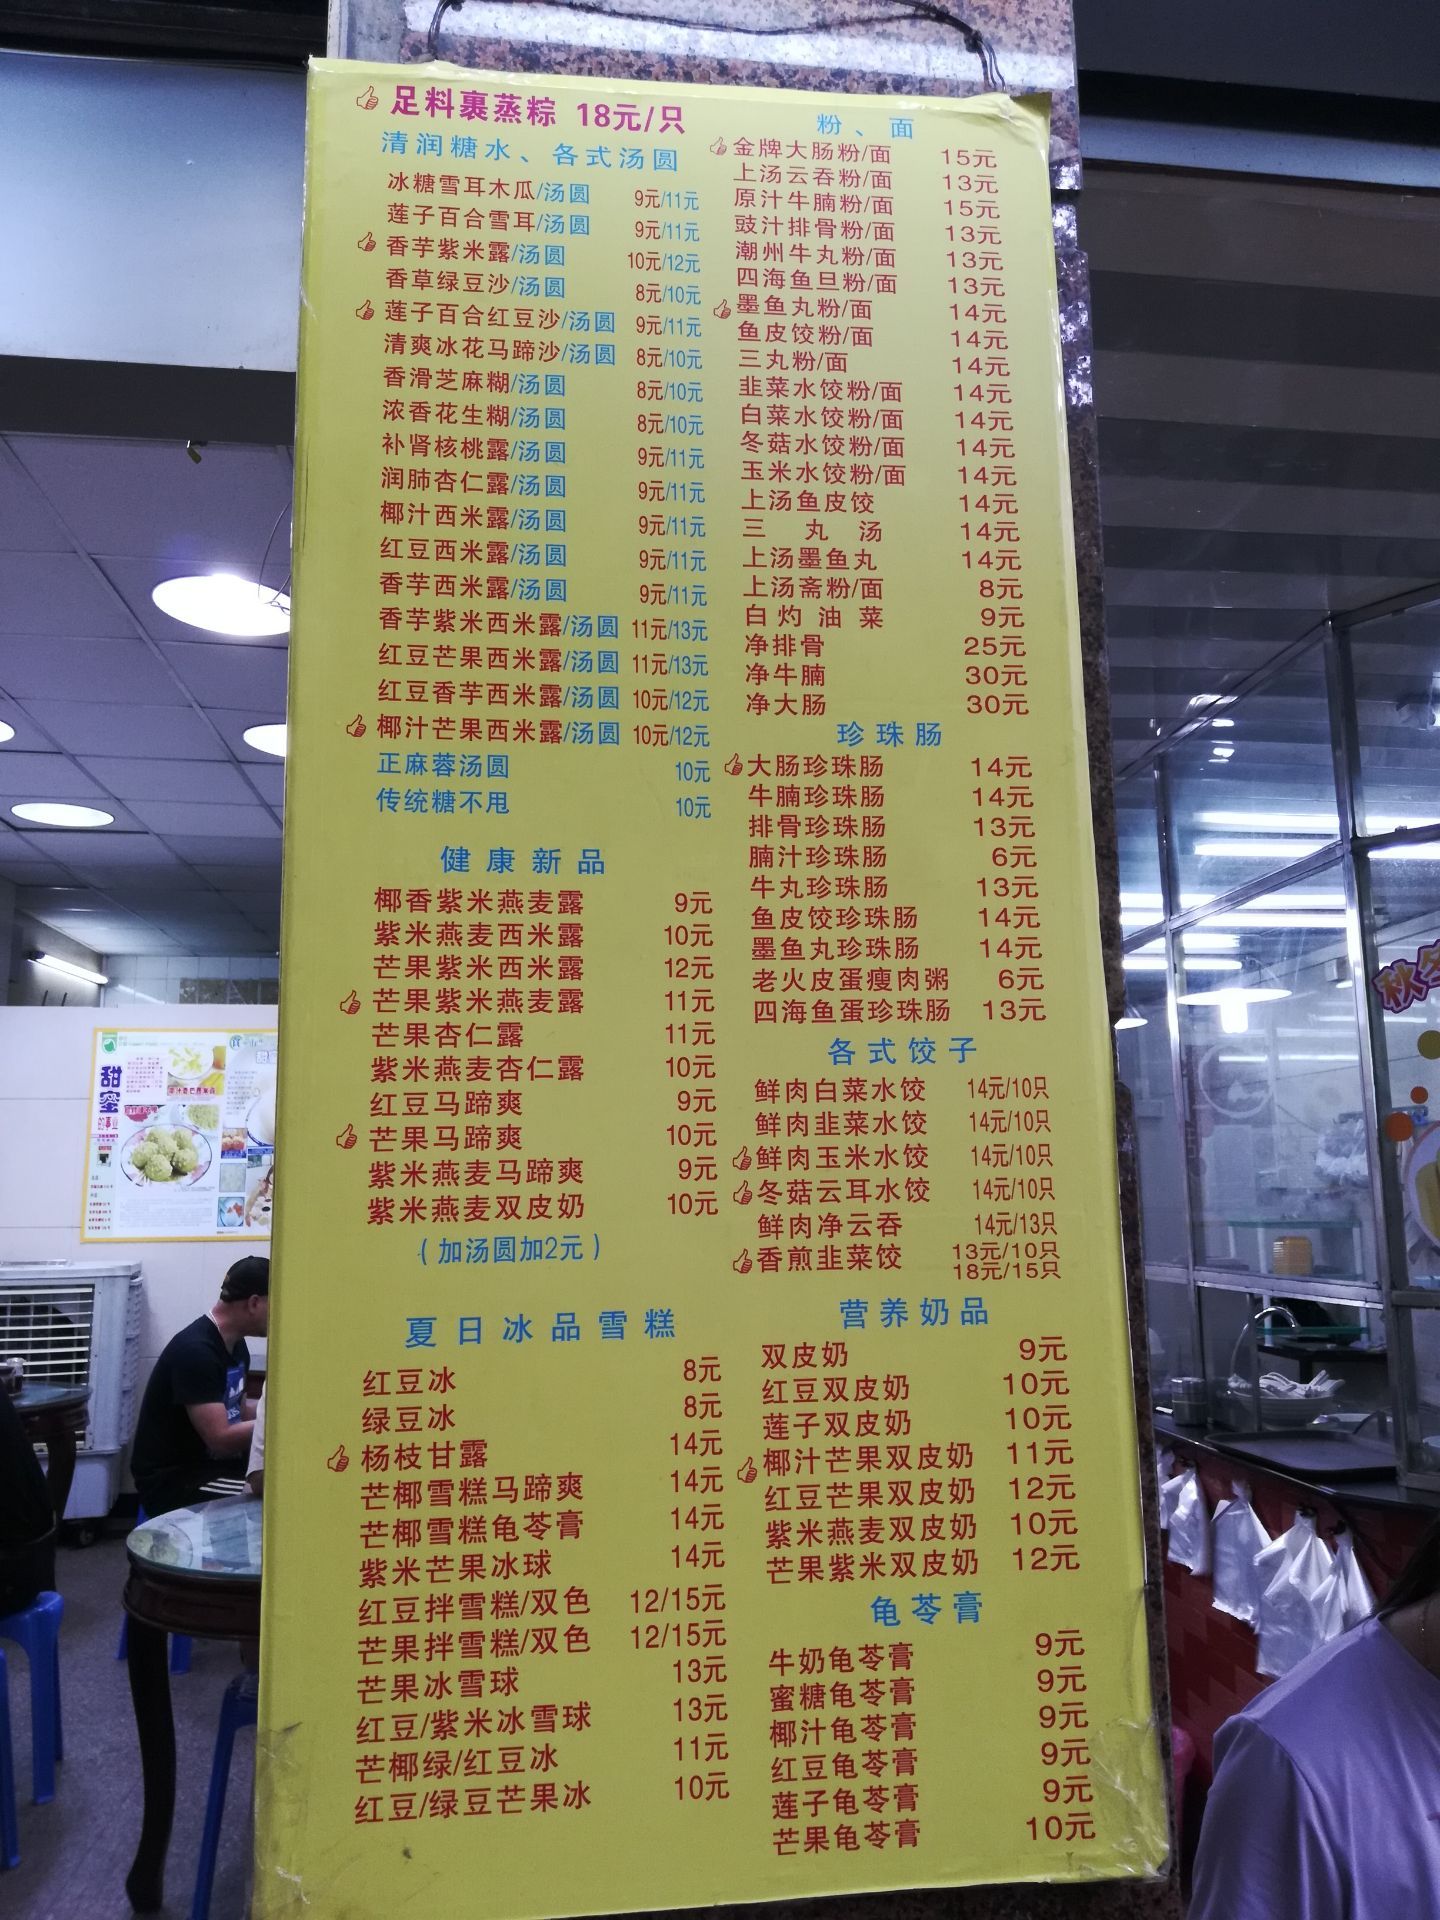 足料裹蒸粽 18元/只
清润糖水、各式汤圆
冰糖雪耳木瓜/汤圆 9元/11元
莲子百合雪耳/汤圆 9元/11元
香芋紫米露/汤圆 10元/12元
香草绿豆沙/汤圆 8元/10元
莲子百合红豆沙/汤圆 9元/11元
清爽冰花马蹄沙/汤圆 8元/10元
香滑芝麻糊/汤圆 8元/10元
浓香花生糊/汤圆 8元/10元
补肾核桃露/汤圆 9元/11元
润肺杏仁露/汤圆 9元/11元
椰汁西米露/汤圆 9元/11元
红豆西米露/汤圆 9元/11元
香芋西米露/汤圆 9元/11元
香芋紫米西米露/汤圆 11元/13元
红豆芒果西米露/汤圆 11元/13元
红豆香芋西米露/汤圆 10元/12元
椰汁芒果西米露/汤圆 10元/12元
正麻蓉汤圆 10元
传统糖不甩 10元
健康新品
椰香紫米燕麦露 9元
紫米燕麦西米露 10元
芒果紫米西米露 12元
芒果紫米燕麦露 11元
芒果杏仁露 11元
紫米燕麦杏仁露 10元
红豆马蹄爽 9元
芒果马蹄爽 10元
紫米燕麦马蹄爽 9元
紫米燕麦双皮奶 10元
(加汤圆加2元)
夏日冰品雪糕
红豆冰 8元
绿豆冰 8元
杨枝甘露 14元
芒椰雪糕马蹄爽 14元
芒椰雪糕龟苓膏 14元
紫米芒果冰球 14元
红豆拌雪糕/双色 12/15元
芒果拌雪糕/双色 12/15元
芒果冰雪球 13元
红豆/紫米冰雪球 13元
芒椰绿/红豆冰 11元
红豆/绿豆芒果冰 10元
粉、面
金牌大肠粉/面 15元
上汤云吞粉/面 13元
原汁牛腩粉/面 15元
豉汁排骨粉/面 13元
潮州牛丸粉/面 13元
四海鱼旦粉/面 13元
墨鱼丸粉/面 14元
鱼皮饺粉/面 14元
三丸粉/面 14元
韭菜水饺粉/面 14元
白菜水饺粉/面 14元
冬菇水饺粉/面 14元
玉米水饺粉/面 14元
上汤鱼皮饺 14元
三丸汤 14元
上汤墨鱼丸 14元
上汤斋粉/面 8元
白灼油菜 9元
净排骨 25元
净牛腩 30元
净大肠 30元
珍珠肠
大肠珍珠肠 14元
牛腩珍珠肠 14元
排骨珍珠肠 13元
腩汁珍珠肠 6元
牛丸珍珠肠 13元
鱼皮饺珍珠肠 14元
墨鱼丸珍珠肠 14元
老火皮蛋瘦肉粥 6元
四海鱼蛋珍珠肠 13元
各式饺子
鲜肉白菜水饺 14元/10只
鲜肉韭菜水饺 14元/10只
鲜肉玉米水饺 14元/10只
冬菇云耳水饺 14元/10只
鲜肉净云吞 14元/13只
香煎韭菜饺 13元/10只
18元/15只
营养奶品
双皮奶 9元
红豆双皮奶 10元
莲子双皮奶 10元
椰汁芒果双皮奶 11元
红豆芒果双皮奶 12元
紫米燕麦双皮奶 10元
芒果紫米双皮奶 12元
龟苓膏
牛奶龟苓膏 9元
蜜糖龟苓膏 9元
椰汁龟苓膏 9元
红豆龟苓膏 9元
莲子龟苓膏 9元
芒果龟苓膏 10元
甜蜜
的事业
秋冬